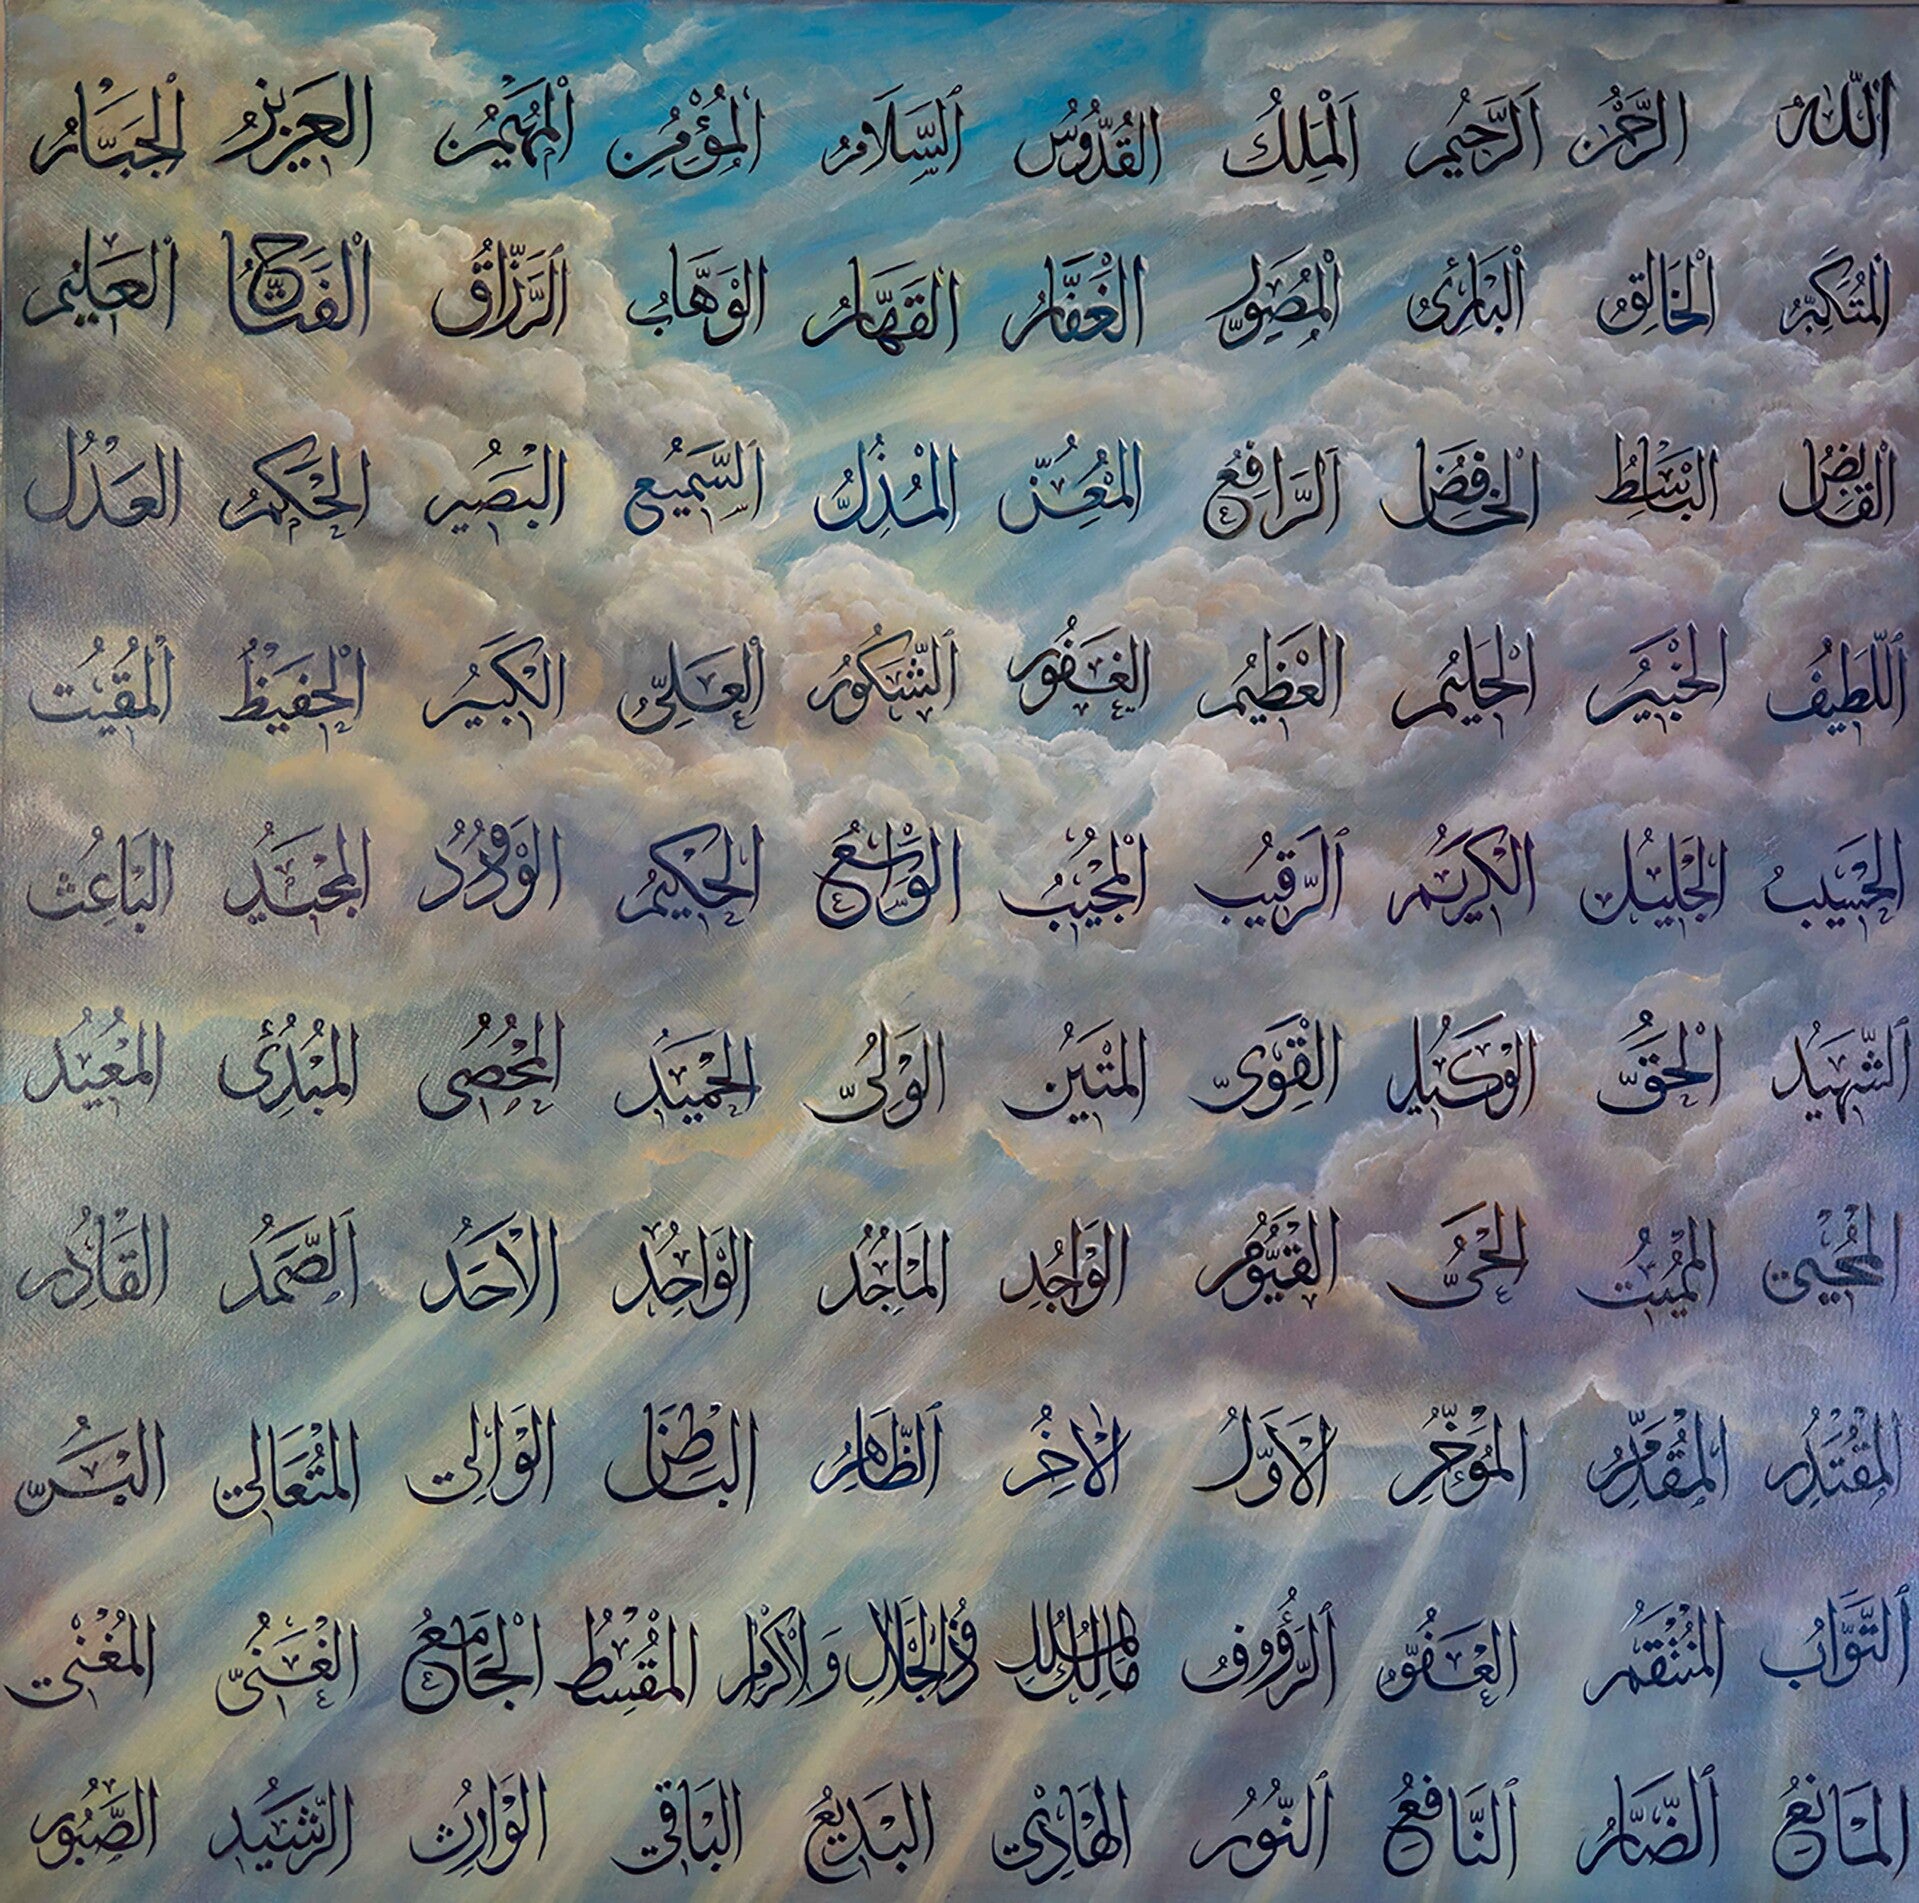 اللّٰهُ الرَّحْمٰنُ الرَّحِيمُ الْمَلِكُ الْقُدُّوسُ السَّلَامُ الْمُؤْمِنُ الْمُهَيْمِنُ الْعَزِيزُ الْجَبَّارُ
الْمُتَكَبِّرُ الْخَالِقُ الْبَارِئُ الْمُصَوِّرُ الْغَفَّارُ الْقَهَّارُ الْوَهَّابُ الرَّزَّاقُ الْفَتَّاحُ الْعَلِيمُ
الْقَابِضُ الْبَاسِطُ الْخَافِضُ الرَّافِعُ الْمُعِزُّ الْمُذِلُّ السَّمِيعُ الْبَصِيرُ الْحَكَمُ الْعَدْلُ
اللَّطِيفُ الْخَبِيرُ الْحَلِيمُ الْعَظِيمُ الْغَفُورُ الشَّكُورُ الْعَلِيُّ الْكَبِيرُ الْحَفِيظُ الْمُقِيتُ
الْحَسِيبُ الْجَلِيلُ الْكَرِيمُ الرَّقِيبُ الْمُجِيبُ الْوَاسِعُ الْحَكِيمُ الْوَدُودُ الْمَجِيدُ الْبَاعِثُ
الشَّهِيدُ الْحَقُّ الْوَكِيلُ الْقَوِيُّ الْمَتِينُ الْوَلِيُّ الْحَمِيدُ الْمُحْصِي الْمُبْدِئُ الْمُعِيدُ
الْمُحْيِي الْمُمِيتُ الْحَيُّ الْقَيُّومُ الْوَاجِدُ الْمَاجِدُ الْوَاحِدُ الْأَحَدُ الصَّمَدُ الْقَادِرُ
الْمُقْتَدِرُ الْمُقَدِّمُ الْمُؤَخِّرُ الْأَوَّلُ الْآخِرُ الظَّاهِرُ الْبَاطِنُ الْوَالِي الْمُتَعَالِي الْبَرُّ
التَّوَّابُ الْمُنْتَقِمُ الْعَفُوُّ الرَّؤُوفُ مَالِكُ الْمُلْكِ ذُو الْجَلَالِ وَالْإِكْرَامِ الْمُقْسِطُ الْجَامِعُ الْغَنِيُّ الْمُغْنِي
الْمَانِعُ الضَّارُّ النَّافِعُ النُّورُ الْهَادِي الْبَدِيعُ الْبَاقِي الْوَارِثُ الرَّشِيدُ الصَّبُورُ